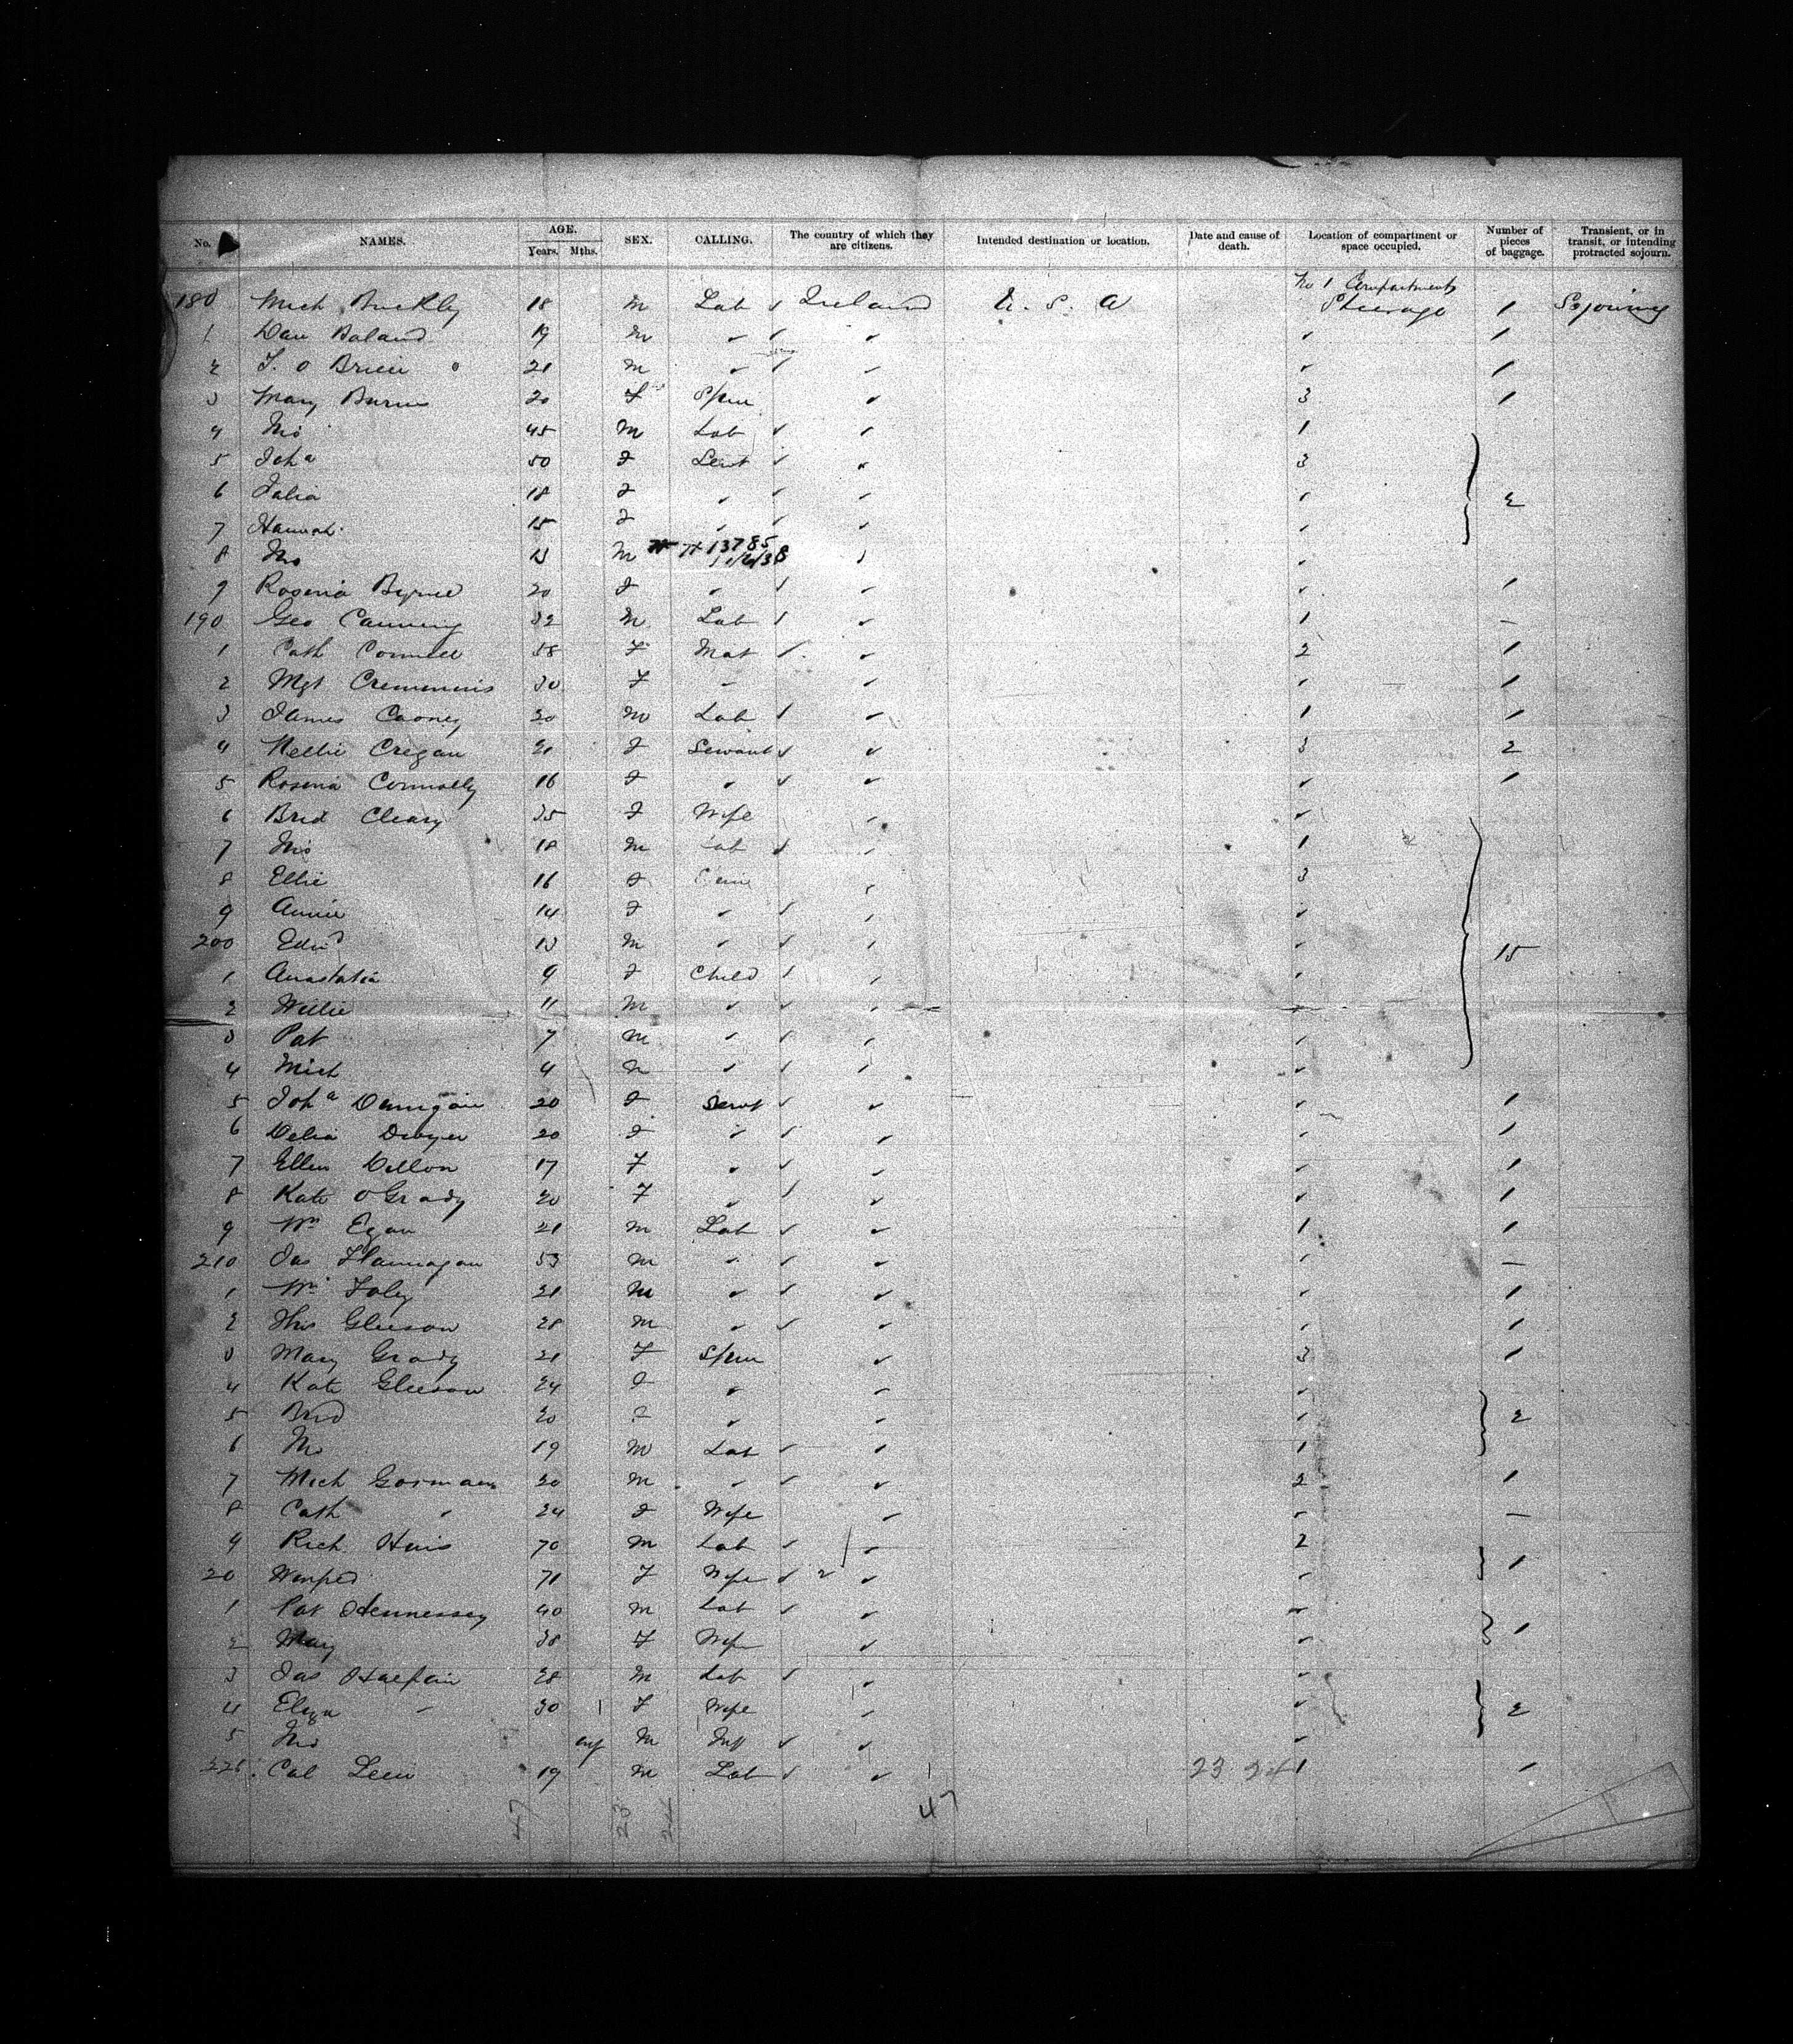 No. NAMES. AGE. Years. Mths. SEX. CALLING. The country of which they are citizens. Intended destination or location. Date and cause of death. Location of compartment or space occupied. Number of pieces of baggage. Transient, or in transit, or intending protracted sojourn.
No 1 Compartments
180 Mich Buckley 18 M Lab ✓ Ireland U. S. A Steerage 1 Sojourning
1 Dan Boland 19 M 1
2 T. O Brien 21 M 1
3 Mary Burns 20 F Spin 3 1
4 Jno 45 M Lab 1
5 Joha 50 F Servt 3
6 Julia 18 F 2
7 Hannah 15 F
8 Jno 13 M 7-13785
9 Rosena Byrne 20 F 1
190 Geo Canning 32 M Lab 1 —
1 Cath Connell 58 F Mat 2 1
2 Mgt Cremmins 30 F 1
3 James Cooney 20 M Lab 1 1
4 Nellie Cregan 21 F Servant 3 2
5 Rosena Connolly 16 F 1
6 Brid Cleary 35 F Wife
7 Jno 18 M Lab 1
8 Ellie 16 F 3
9 Annie 14 F
200 Edwd 13 M 15
1 Anastatia 9 F Child
2 Willie 11 M
3 Pat 7 M
4 Mich 4 M
5 Joha 20 F Servt 1
6 Delia Dwyer 20 F 1
7 Ellen Dillon 17 F 1
8 Kate O Grady 20 F 1
9 Wm Egan 21 M Lab 1 1
210 Jas Flannagan 53 M —
1 Wm Foley 21 M 1
2 Thos Gleeson 28 M 1
3 Mary Grady 21 F Spin 3 1
4 Kate Gleeson 24 F
5 Brid 20 F 2
6 Jno 19 M Lab 1
7 Mich Gorman 20 M 2 1
8 Cath " 24 F Wife —
9 Rich 70 M Lab 2 1
20 Winifred 71 F Wife
1 Pat Hennessey 40 M Lab 1
2 Mary 38 F Wife
3 Jas Halpin 28 M Lab
4 Eliza 30 F Wife 2
5 Jno inf M Inf
226 19 M Lab 23 24 1 1
47 23 24 47